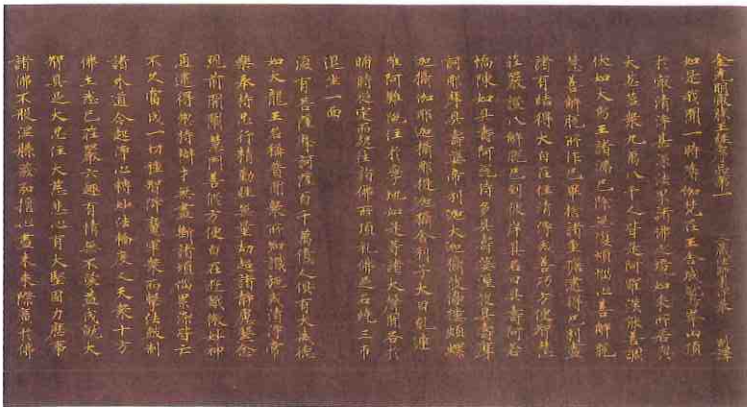 金光明最勝王經序品第一　三藏法師義淨奉制譯
如是我聞一時薄伽梵在王舍城鷲峯山頂
於最清淨甚深法界諸佛之境如來所居與
大苾芻衆九萬八千人皆是阿羅漢能善調
伏如大象王諸漏已除無復煩惱心善解脫
慧善解脫所作已畢捨諸重擔逮得己利盡
諸有結得大自在住清淨戒善巧方便智慧
莊嚴證八解脫已到彼岸其名曰具壽阿若
憍陳如具壽阿說侍多具壽婆濕波具壽摩
訶那摩具壽婆帝利迦大迦攝波優樓頻螺
迦攝伽耶迦攝那提迦攝舍利子大目乾連
唯阿難陀住於學地如是等諸大聲聞各於
晡時從定而起往詣佛所頂礼佛足右繞三帀
退坐一面
復有菩薩摩訶薩百千萬億人俱有大威德
如大龍王名稱普聞衆所知識施戒清淨常
樂奉持忍行精勤經無量劫超諸靜慮繫念
現前開闡慧門善修方便自在遊戲微妙神
通逮得總持辯才無盡斷諸煩惱累染皆亡
不久當成一切種智降魔軍衆而擊法鼓制
諸外道令起淨心轉妙法輪度人天衆十方
佛土悉已莊嚴六趣有情無不蒙益成就大
智具足大忍住大慈悲心有大堅固力歷事
諸佛不般涅槃發弘誓心盡未來際廣於佛